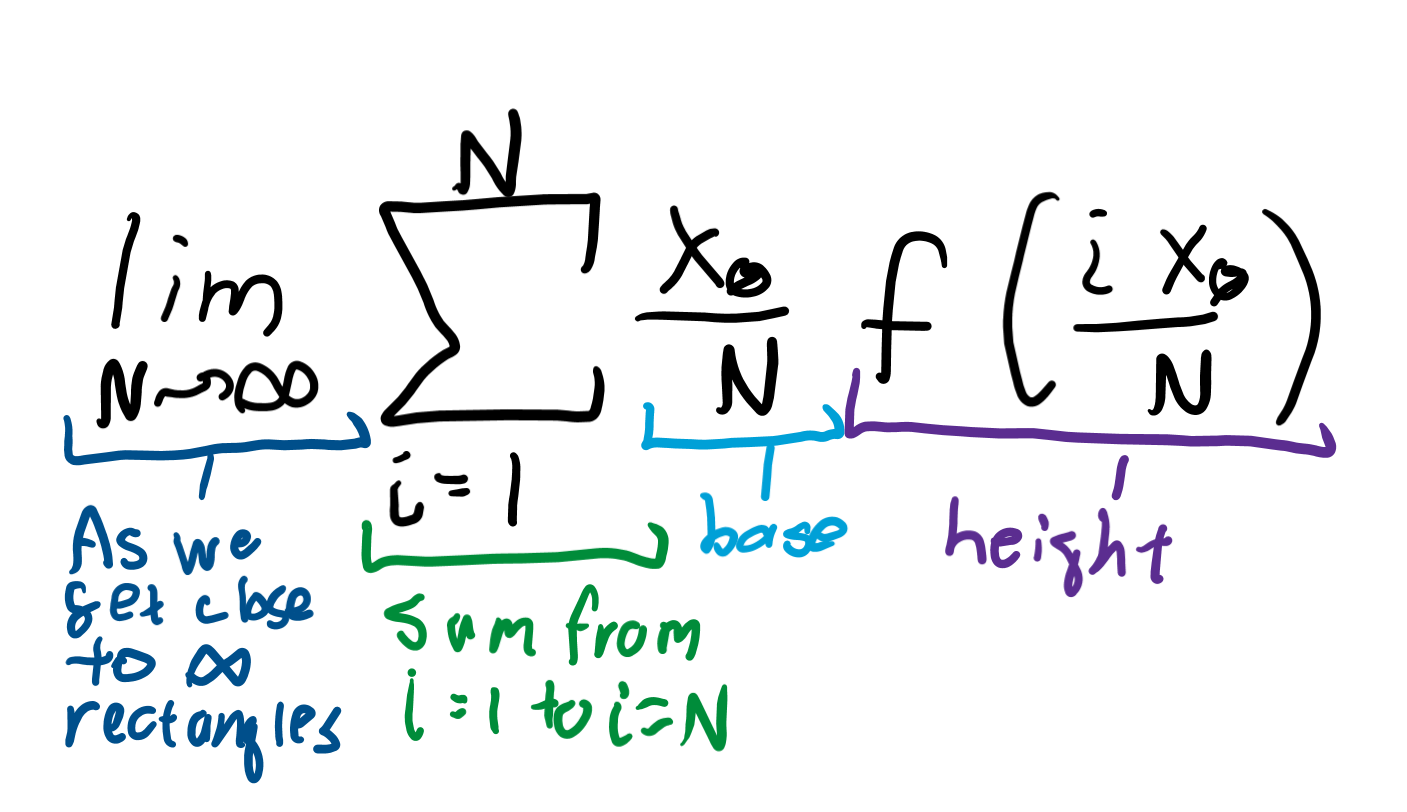 lim N→∞ N Σ i=1 x₀/N f(i x₀/N)
As we
get close
to ∞
rectangles
sum from
i=1 to i=N
base
height